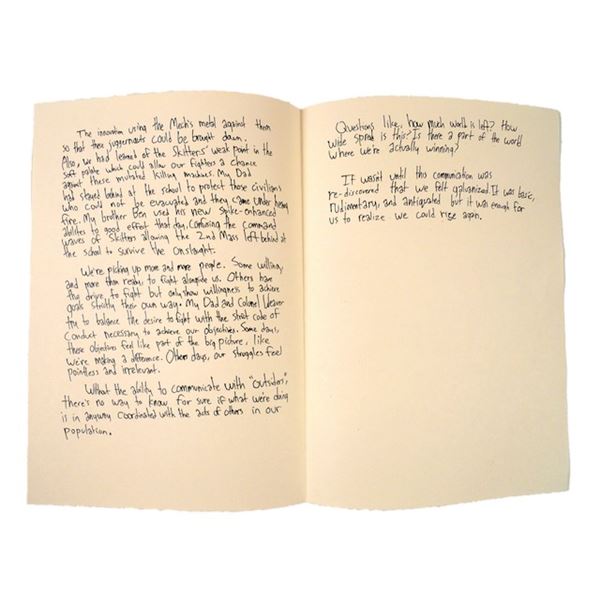 The innovation using the Mech's metal against them
so that these juggernauts could be brought down.
Also, we had learned of the Skitters' weak point in the
soft palate which could allow our fighters a chance
against these mutated killing machines. My Dad
had stayed behind at the school to protect those civilians
who could not be evacuated and they came under heavy
fire. My brother Ben used his new spike-enhanced
abilites to good effect that day, confusing the command
waves of Skitters allowing the 2nd Mass left behind at
the school to survive the onslaught.
We're picking up more and more people. Some willing
and more than ready to fight alongside us. Others have
the desire to fight but only show willingness to achieve
goals strictly their own way. My Dad and Colonel Weaver
try to balance the desire to fight with the strict code of
conduct necessary to achieve our objectives. Some days,
these objectives feel like part of the big picture, like
we're making a difference. Other days, our struggles feel
pointless and irrelevant.
Without the ability to communicate with "outsiders",
there's no way to know for sure if what we're doing
is in anyway coordinated with the acts of others in our
population.
Questions like, how much world is left? How
wide spread is this? Is there a part of the world
where we're actually winning?
It wasn't until this communication was
re-discovered that we felt galvanized. It was basic,
rudimentary, and antiquated but it was enough for
us to realize we could rise again.